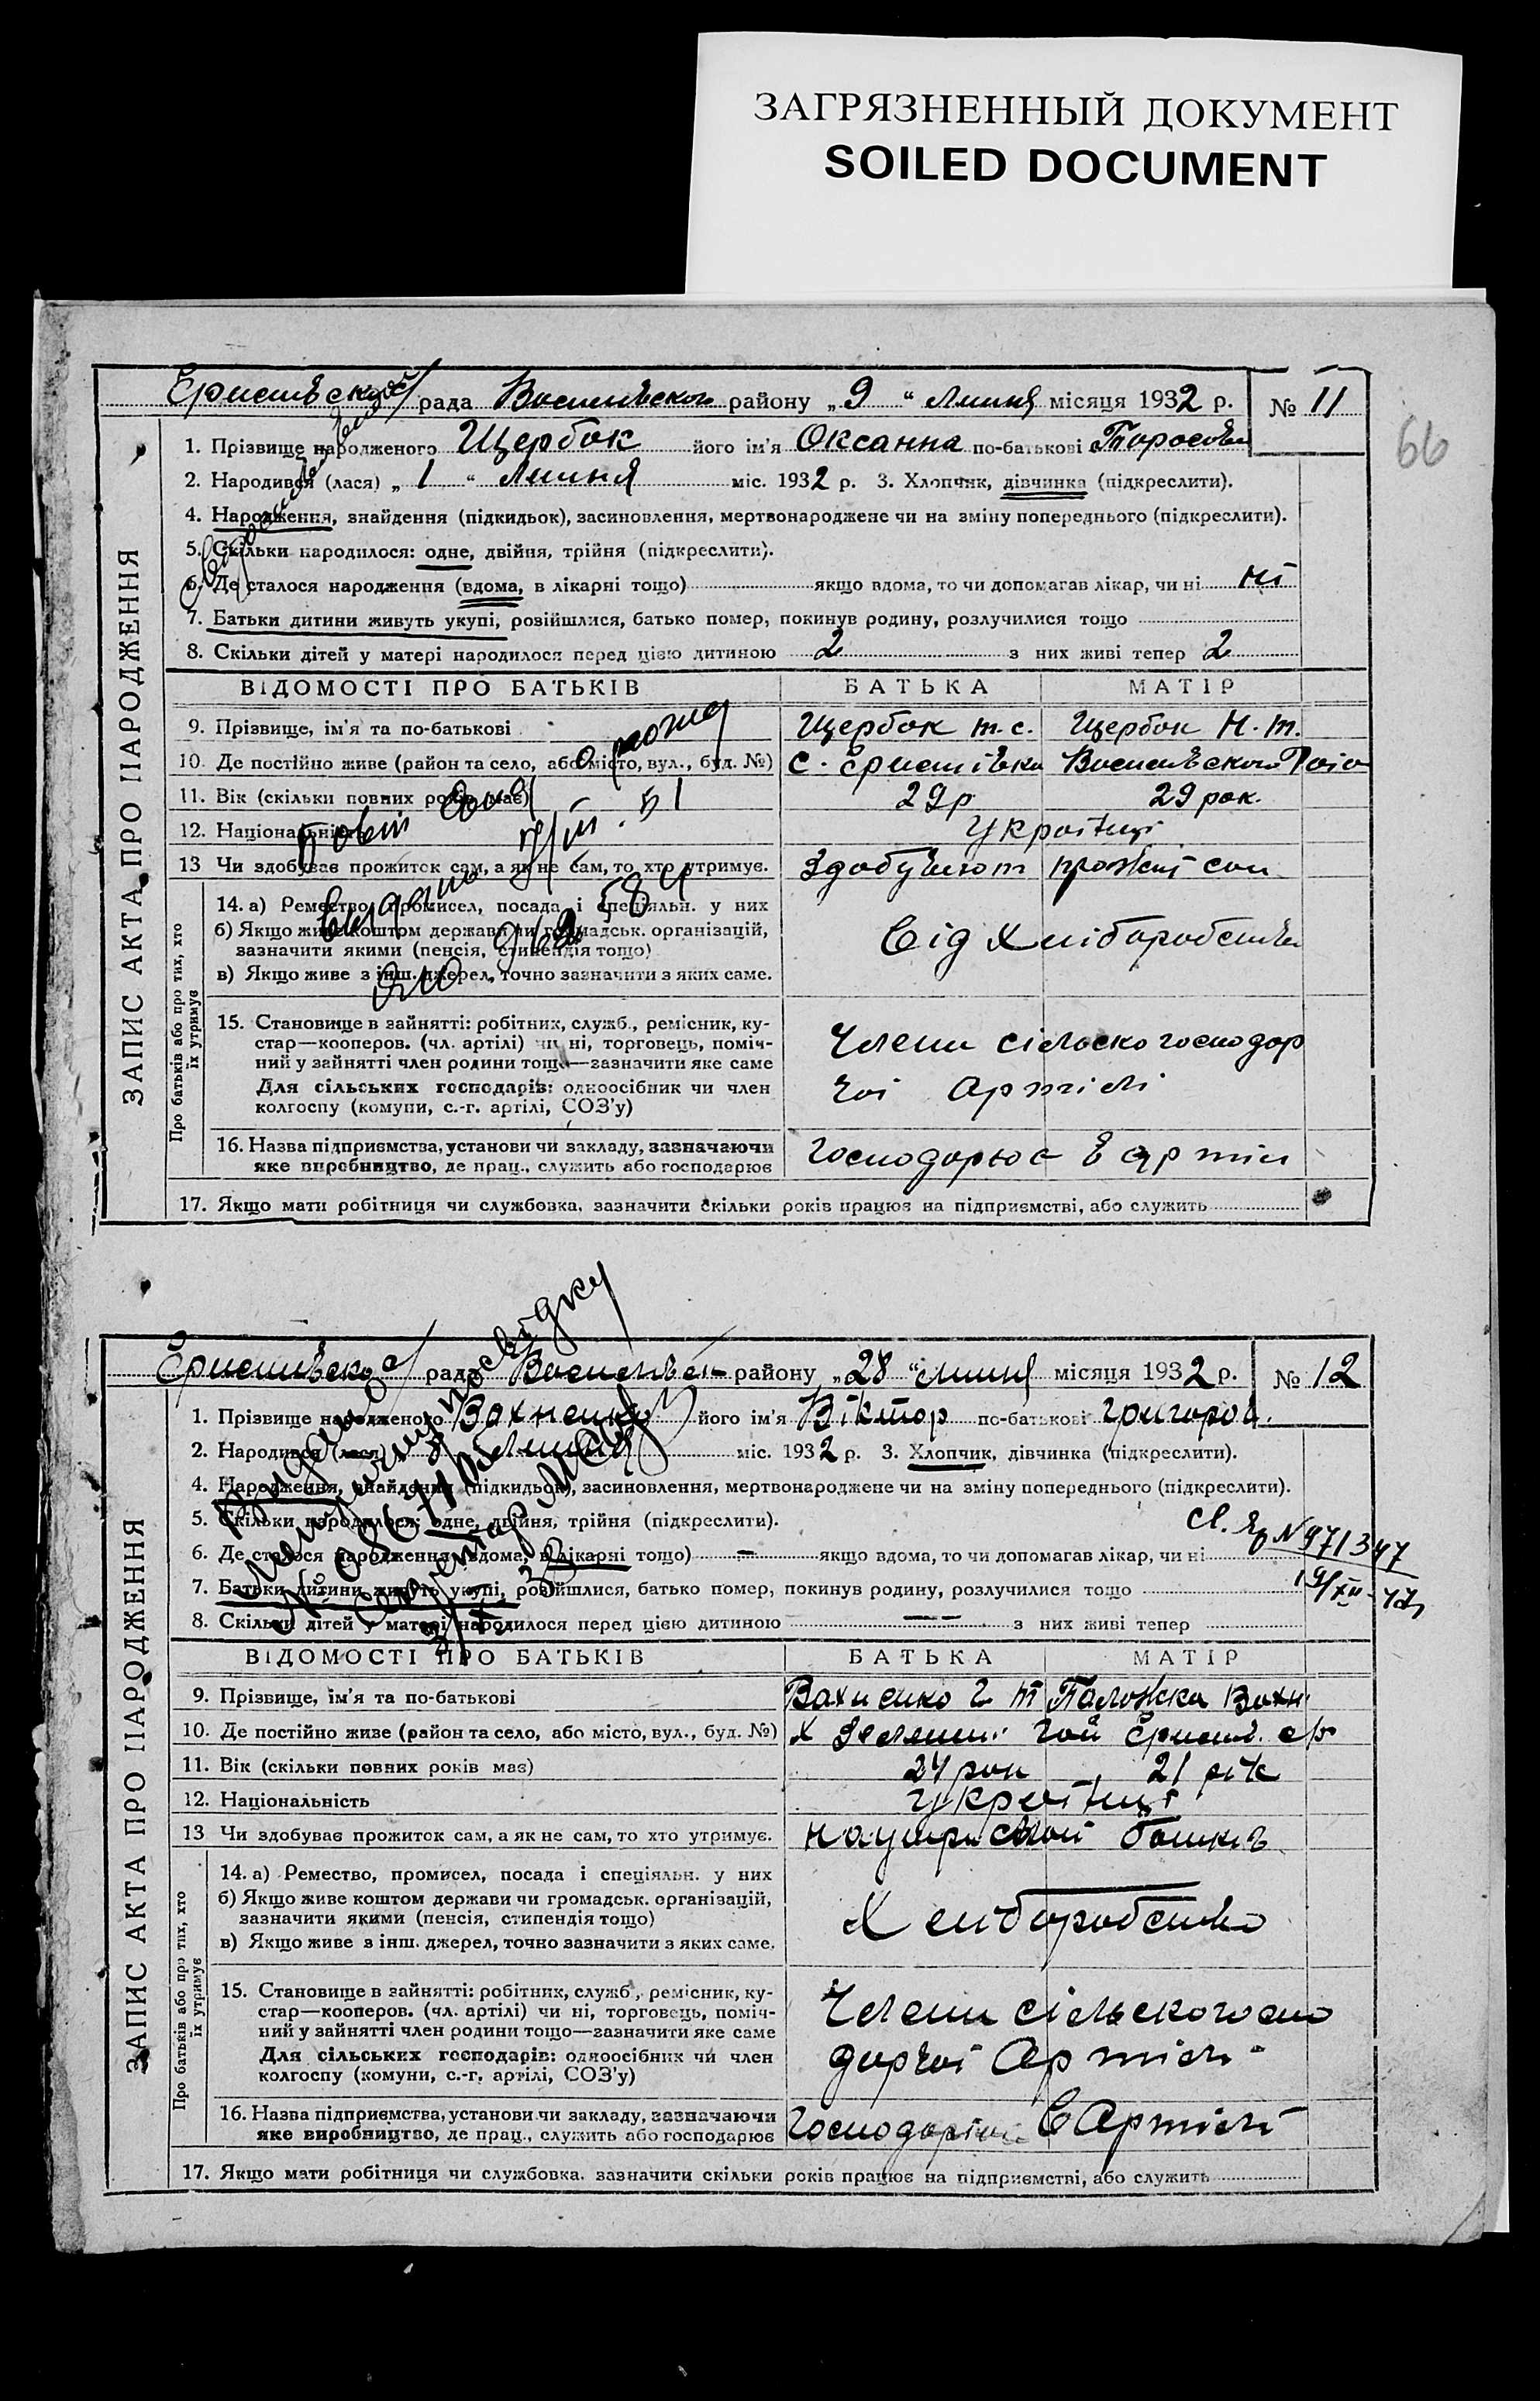 ЗАГРЯЗНЕННЫЙ ДОКУМЕНТ
SOILED DOCUMENT
66
ЗАПИС АКТА ПРО НАРОДЖЕННЯ
рада району „9“ Липня місяця 1932 р. № 11
1. Прізвище народженого Щербак його ім'я Оксанна по-батькові Тарасовн
2. Народився (лася) „1“ Липня міс. 1932 р. 3. Хлопчик, дівчинка (підкреслити).
4. Народження, знайдення (підкидьок), засиновлення, мертвонароджене чи на зміну попереднього (підкреслити).
5. Скільки народилося: одне, двійня, трійня (підкреслити).
6. Де сталося народження (вдома, в лікарні тощо) якщо вдома, то чи допомагав лікар, чи ні ні
7. Батьки дитини живуть укупі, розійшлися, батько помер, покинув родину, розлучилися тощо
8. Скільки дітей у матері народилося перед цією дитиною 2 з них живі тепер 2
ВІДОМОСТІ ПРО БАТЬКІВ БАТЬКА МАТІР
9. Прізвище, ім'я та по-батькові Щербак т. с. Щербак Н. т.
10. Де постійно живе (район та село, або місто, вул., буд. №) с. Єристівка
11. Вік (скільки повних років має) 29 р 29 рок.
12. Національність Українці
13 Чи здобуває прожиток сам, а як не сам, то хто утримує.
Про батьків або про тих, хто їх утримує
14. а) Ремество, промисел, посада і спеціяльн. у них
б) Якщо живе коштом держави чи громадськ. організацій,
зазначити якими (пенсія, стипендія тощо)
в) Якщо живе з інш. джерел, точно зазначити з яких саме.
Від Хліборобства
15. Становище в зайнятті: робітник, служб., ремісник, ку-
стар—кооперов. (чл. артілі) чи ні, торговець, поміч-
ний у зайнятті член родини тощо—зазначити яке саме
Для сільських господарів: одноосібник чи член
колгоспу (комуни, с.-г. артілі, СОЗ'у)
Члени сільско господар
чої Артілі
16. Назва підприємства, установи чи закладу, зазначаючи
яке виробництво, де прац., служить або господарює
17. Якщо мати робітниця чи службовка, зазначити скільки років працює на підприємстві, або служить
ЗАПИС АКТА ПРО НАРОДЖЕННЯ
рада району „28“ Липня місяця 1932 р. № 12
1. Прізвище народженого Вахненко його ім'я Віктор по-батькові Григоров.
2. Народився (лася) Липня міс. 1932 р. 3. Хлопчик, дівчинка (підкреслити).
4. Народження, знайдення (підкидьок), засиновлення, мертвонароджене чи на зміну попереднього (підкреслити).
5. Скільки народилося: одне, двійня, трійня (підкреслити).
6. Де сталося народження (вдома, в лікарні тощо) — якщо вдома, то чи допомагав лікар, чи ні
7. Батьки дитини живуть укупі, розійшлися, батько помер, покинув родину, розлучилися тощо
8. Скільки дітей у матері народилося перед цією дитиною — з них живі тепер
ВІДОМОСТІ ПРО БАТЬКІВ БАТЬКА МАТІР
9. Прізвище, ім'я та по-батькові Вахненко Г Т Палажка Вахн.
10. Де постійно живе (район та село, або місто, вул., буд. №)
11. Вік (скільки повних років має) 24 рок 21 рік
12. Національність Українці
13 Чи здобуває прожиток сам, а як не сам, то хто утримує.
Про батьків або про тих, хто їх утримує
14. а) Ремество, промисел, посада і спеціяльн. у них
б) Якщо живе коштом держави чи громадськ. організацій,
зазначити якими (пенсія, стипендія тощо)
в) Якщо живе з інш. джерел, точно зазначити з яких саме.
Хліборобство
15. Становище в зайнятті: робітник, служб., ремісник, ку-
стар—кооперов. (чл. артілі) чи ні, торговець, поміч-
ний у зайнятті член родини тощо—зазначити яке саме
Для сільських господарів: одноосібник чи член
колгоспу (комуни, с.-г. артілі, СОЗ'у)
Члени сільскогоспо
дарчої Артілі
16. Назва підприємства, установи чи закладу, зазначаючи
яке виробництво, де прац., служить або господарює
в Артілі
17. Якщо мати робітниця чи службовка, зазначити скільки років працює на підприємстві, або служить